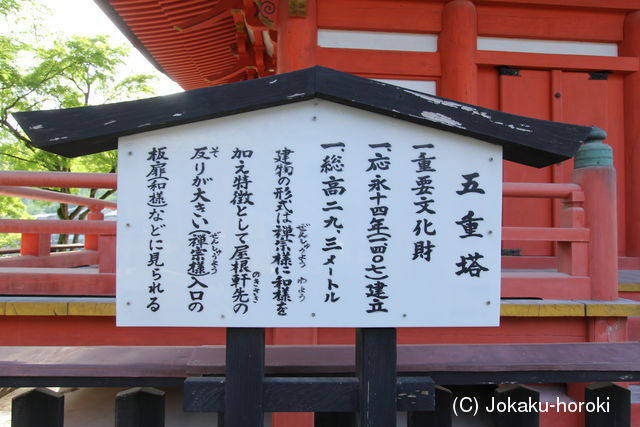 五重塔
一、重要文化財
一、応永十四年(一四〇七)建立
一、総高二九、三メートル
建物の形式は禅宗様に和様を
ぜんしゅうよう わよう
加え特徴として屋根軒先の
のきさき
反りが大きい(禅宗様)入口の
そ ぜんしゅうよう
板扉(和様)などに見られる
(C) Jokaku-horoki